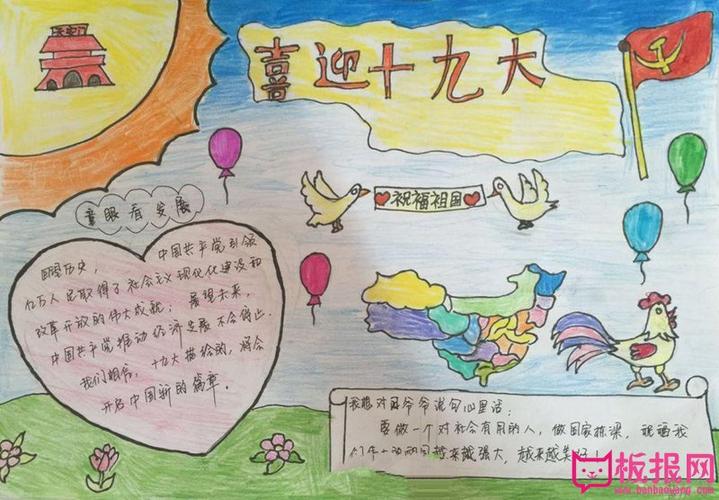 天安门
喜迎十九大
祝福祖国
童眼看发展
回望历史， 中国共产党引领
亿万人民取得了社会主义现代化建设和
改革开放的伟大成就；展望未来，
中国共产党推动经济发展不会停止。
我们相信，十九大描绘的，将会
开启中国新的篇章。
我想对习爷爷说句心里话：
要做一个对社会有用的人，做国家栋梁，祝福我
越来越强大，越来越美好！
板报网
www.banbaowang.com